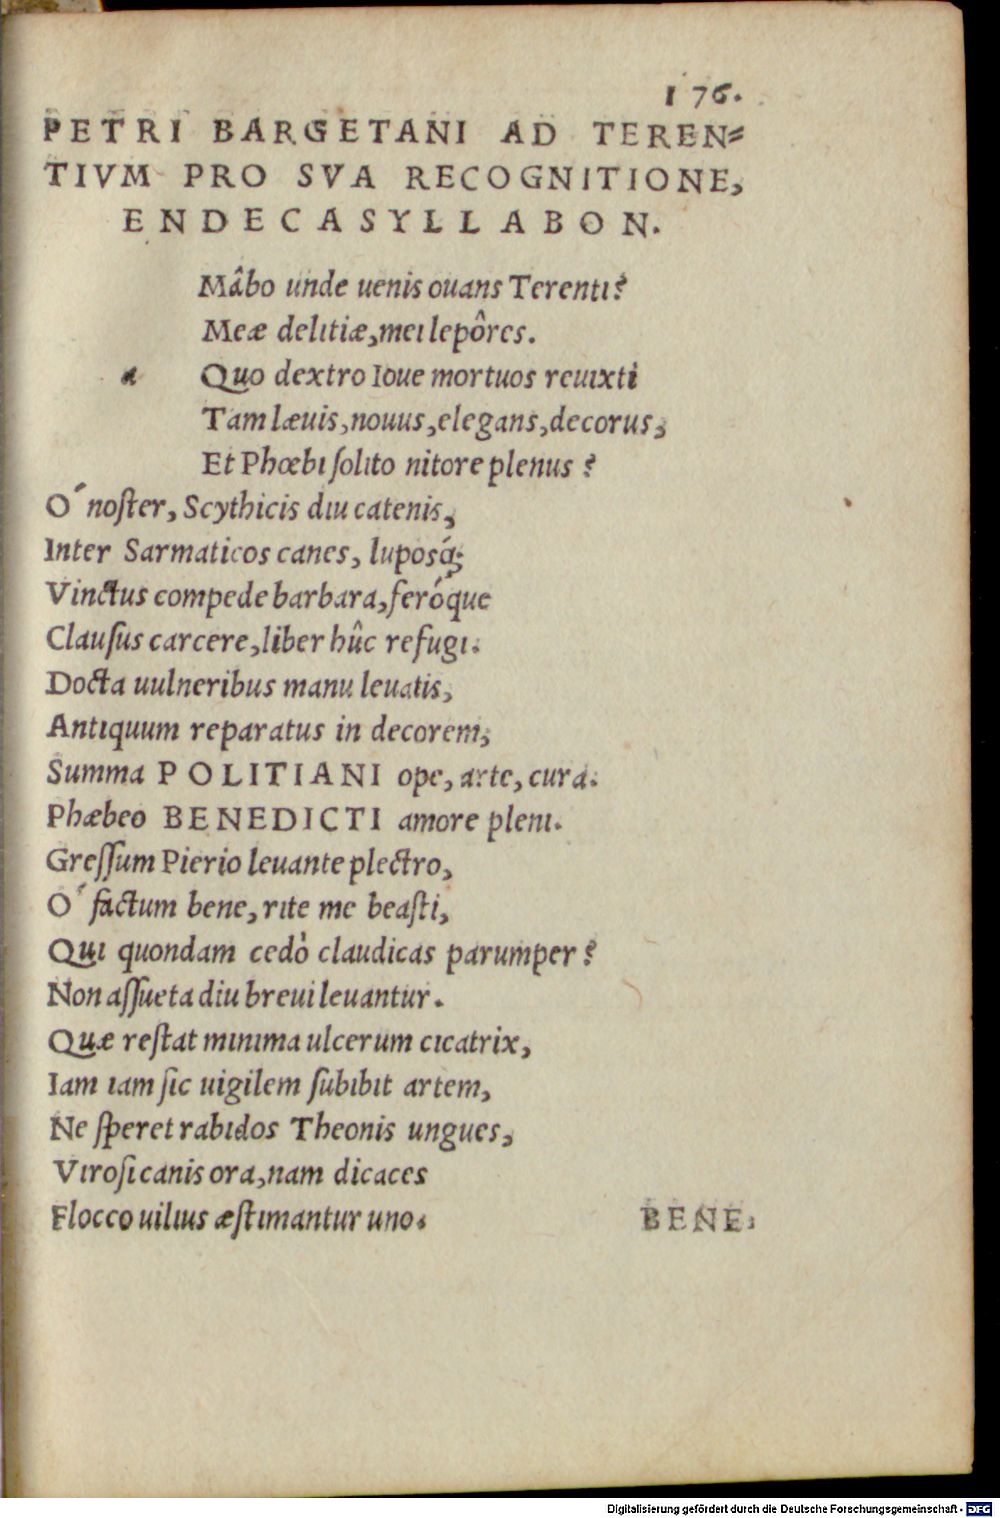 176.
PETRI BARGETANI AD TEREN=
TIVM PRO SVA RECOGNITIONE,
ENDECASYLLABON.
Mâbo unde uenis ouans Terenti?
Meæ delitiæ, mei lepôres.
Quo dextro Ioue mortuos reuixti
Tam læuis, nouus, elegans, decorus,
Et Phœbi ſolito nitore plenus?
Ó noſter, Scythicis diu catenis,
Inter Sarmaticos canes, luposq́;
Vinctus compede barbara, feróque
Clauſus carcere, liber hûc refugi.
Docta uulneribus manu leuatis,
Antiquum reparatus in decorem,
Summa POLITIANI ope, arte, cura.
Phæbeo BENEDICTI amore pleni.
Greſſum Pierio leuante plectro,
Ó factum bene, rite me beaſti,
Qui quondam cedò claudicas parumper?
Non aſſueta diu breui leuantur.
Quæ reſtat minima ulcerum cicatrix,
Iam iam ſic uigilem ſubibit artem,
Ne ſperet rabidos Theonis ungues,
Viroſi canis ora, nam dicaces
Flocco uilius æſtimantur uno.
BENE:
Digitalisierung gefördert durch die Deutsche Forschungsgemeinschaft - DFG